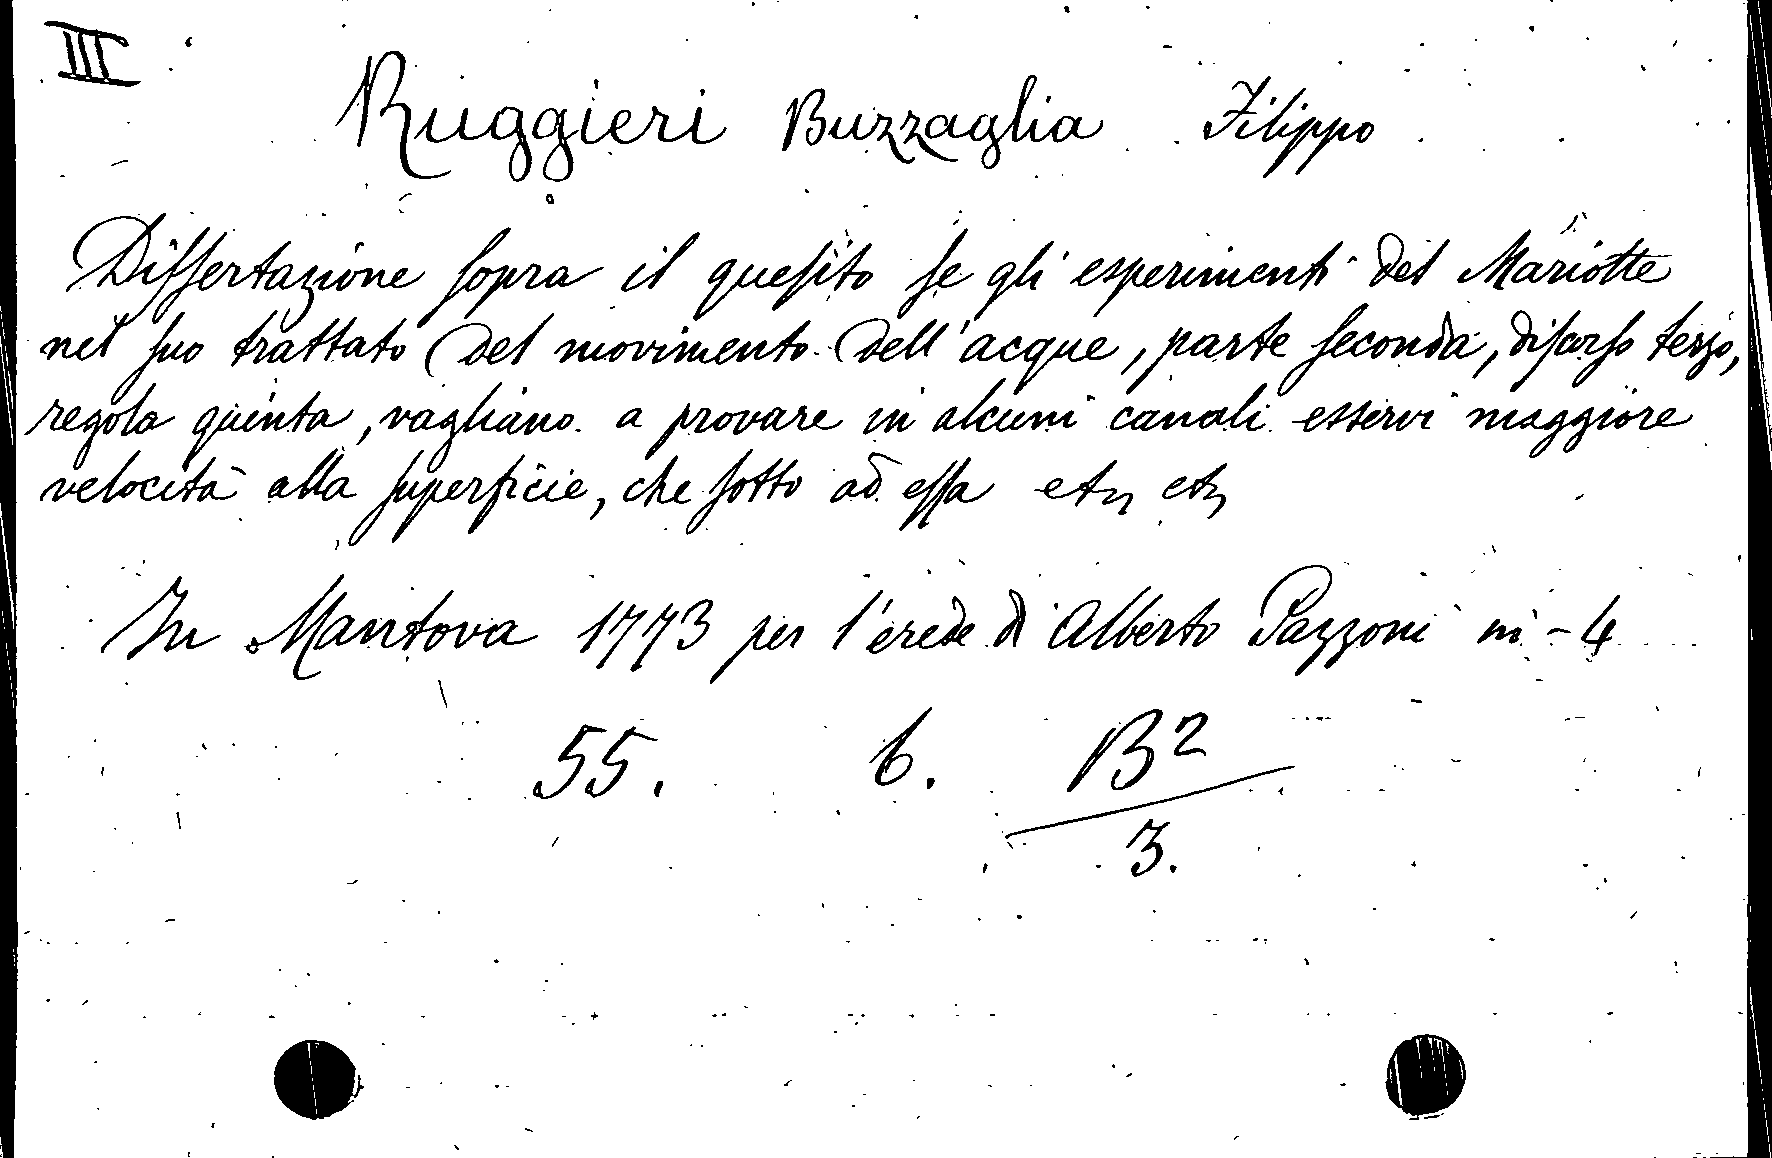 III
Ruggieri Buzzaglia Filippo
Dissertazione sopra il quesito se gli esperimenti del Mariotte
nel suo trattato del movimento dell'acque, parte seconda, discorso terzo,
regola quinta, vagliano a provare in alcuni canali esservi maggiore
velocità alla superficie, che sotto ad essa etc etc
In Mantova 1773 per l'erede di Alberto Pazzoni in-4
55. 6. B²
3.